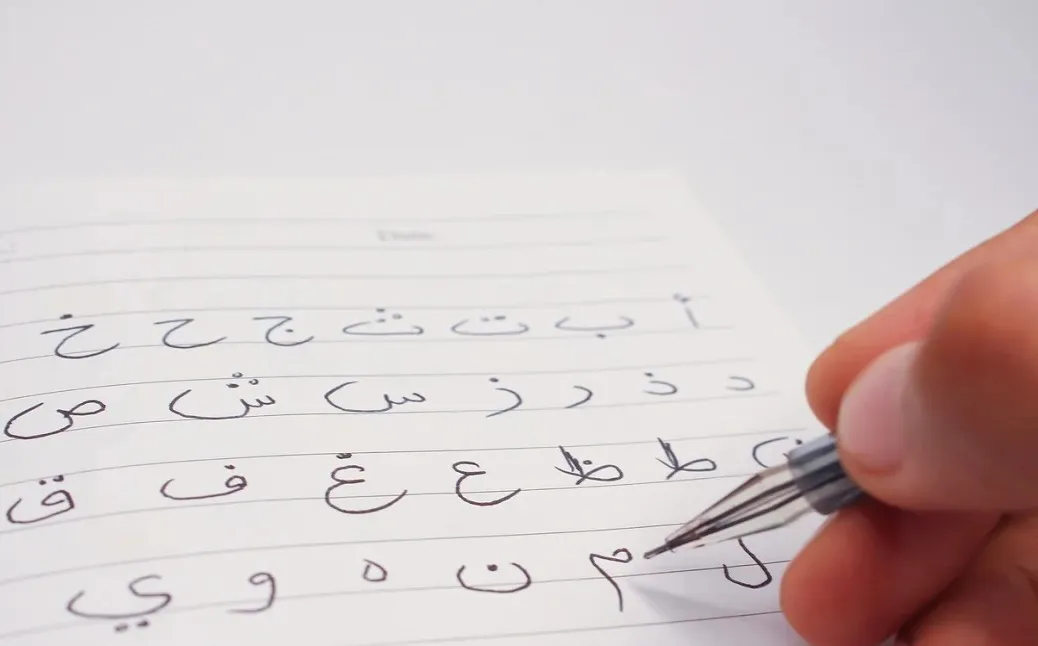 Date
أ ب ت ث ج ح خ
د ذ ر ز س ش ص
ط ظ ع غ ف ق
ل م ن ه و ي